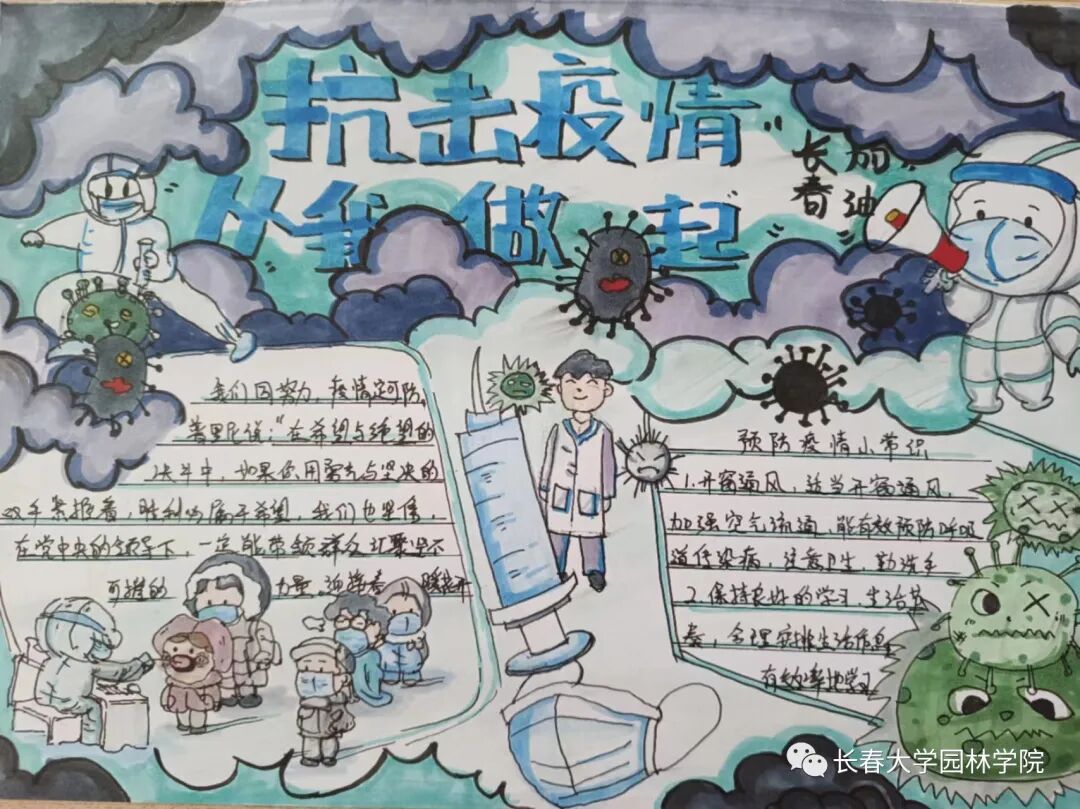 抗击疫情
从我做起
长春加油
我们因努力，疫情定可防，
普里尼说：“在希望与绝望的
决斗中，如果你用勇气与坚决的
双手紧握着，胜利必属于希望，我们也坚信，
在党中央的领导下，一定能带领群众汇聚坚不
可摧的 力量，迎接春 暖花开
预防疫情小常识
1.开窗通风，适当开窗通风，
加强空气流通，能有效预防呼吸
道传染病，注意卫生，勤洗手
2.保持良好的学习，生活节
奏，合理安排生活作息
有效率地学习
长春大学园林学院